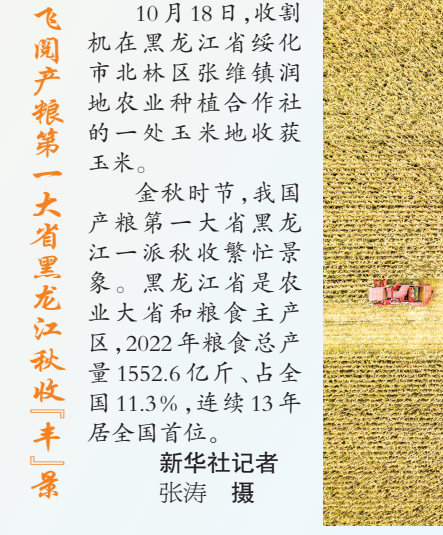 飞阅产粮第一大省黑龙江秋收『丰』景
10月18日,收割
机在黑龙江省绥化
市北林区张维镇润
地农业种植合作社
的一处玉米地收获
玉米。
金秋时节,我国
产粮第一大省黑龙
江一派秋收繁忙景
象。黑龙江省是农
业大省和粮食主产
区,2022年粮食总产
量1552.6亿斤、占全
国11.3%,连续13年
居全国首位。
新华社记者
张涛 摄